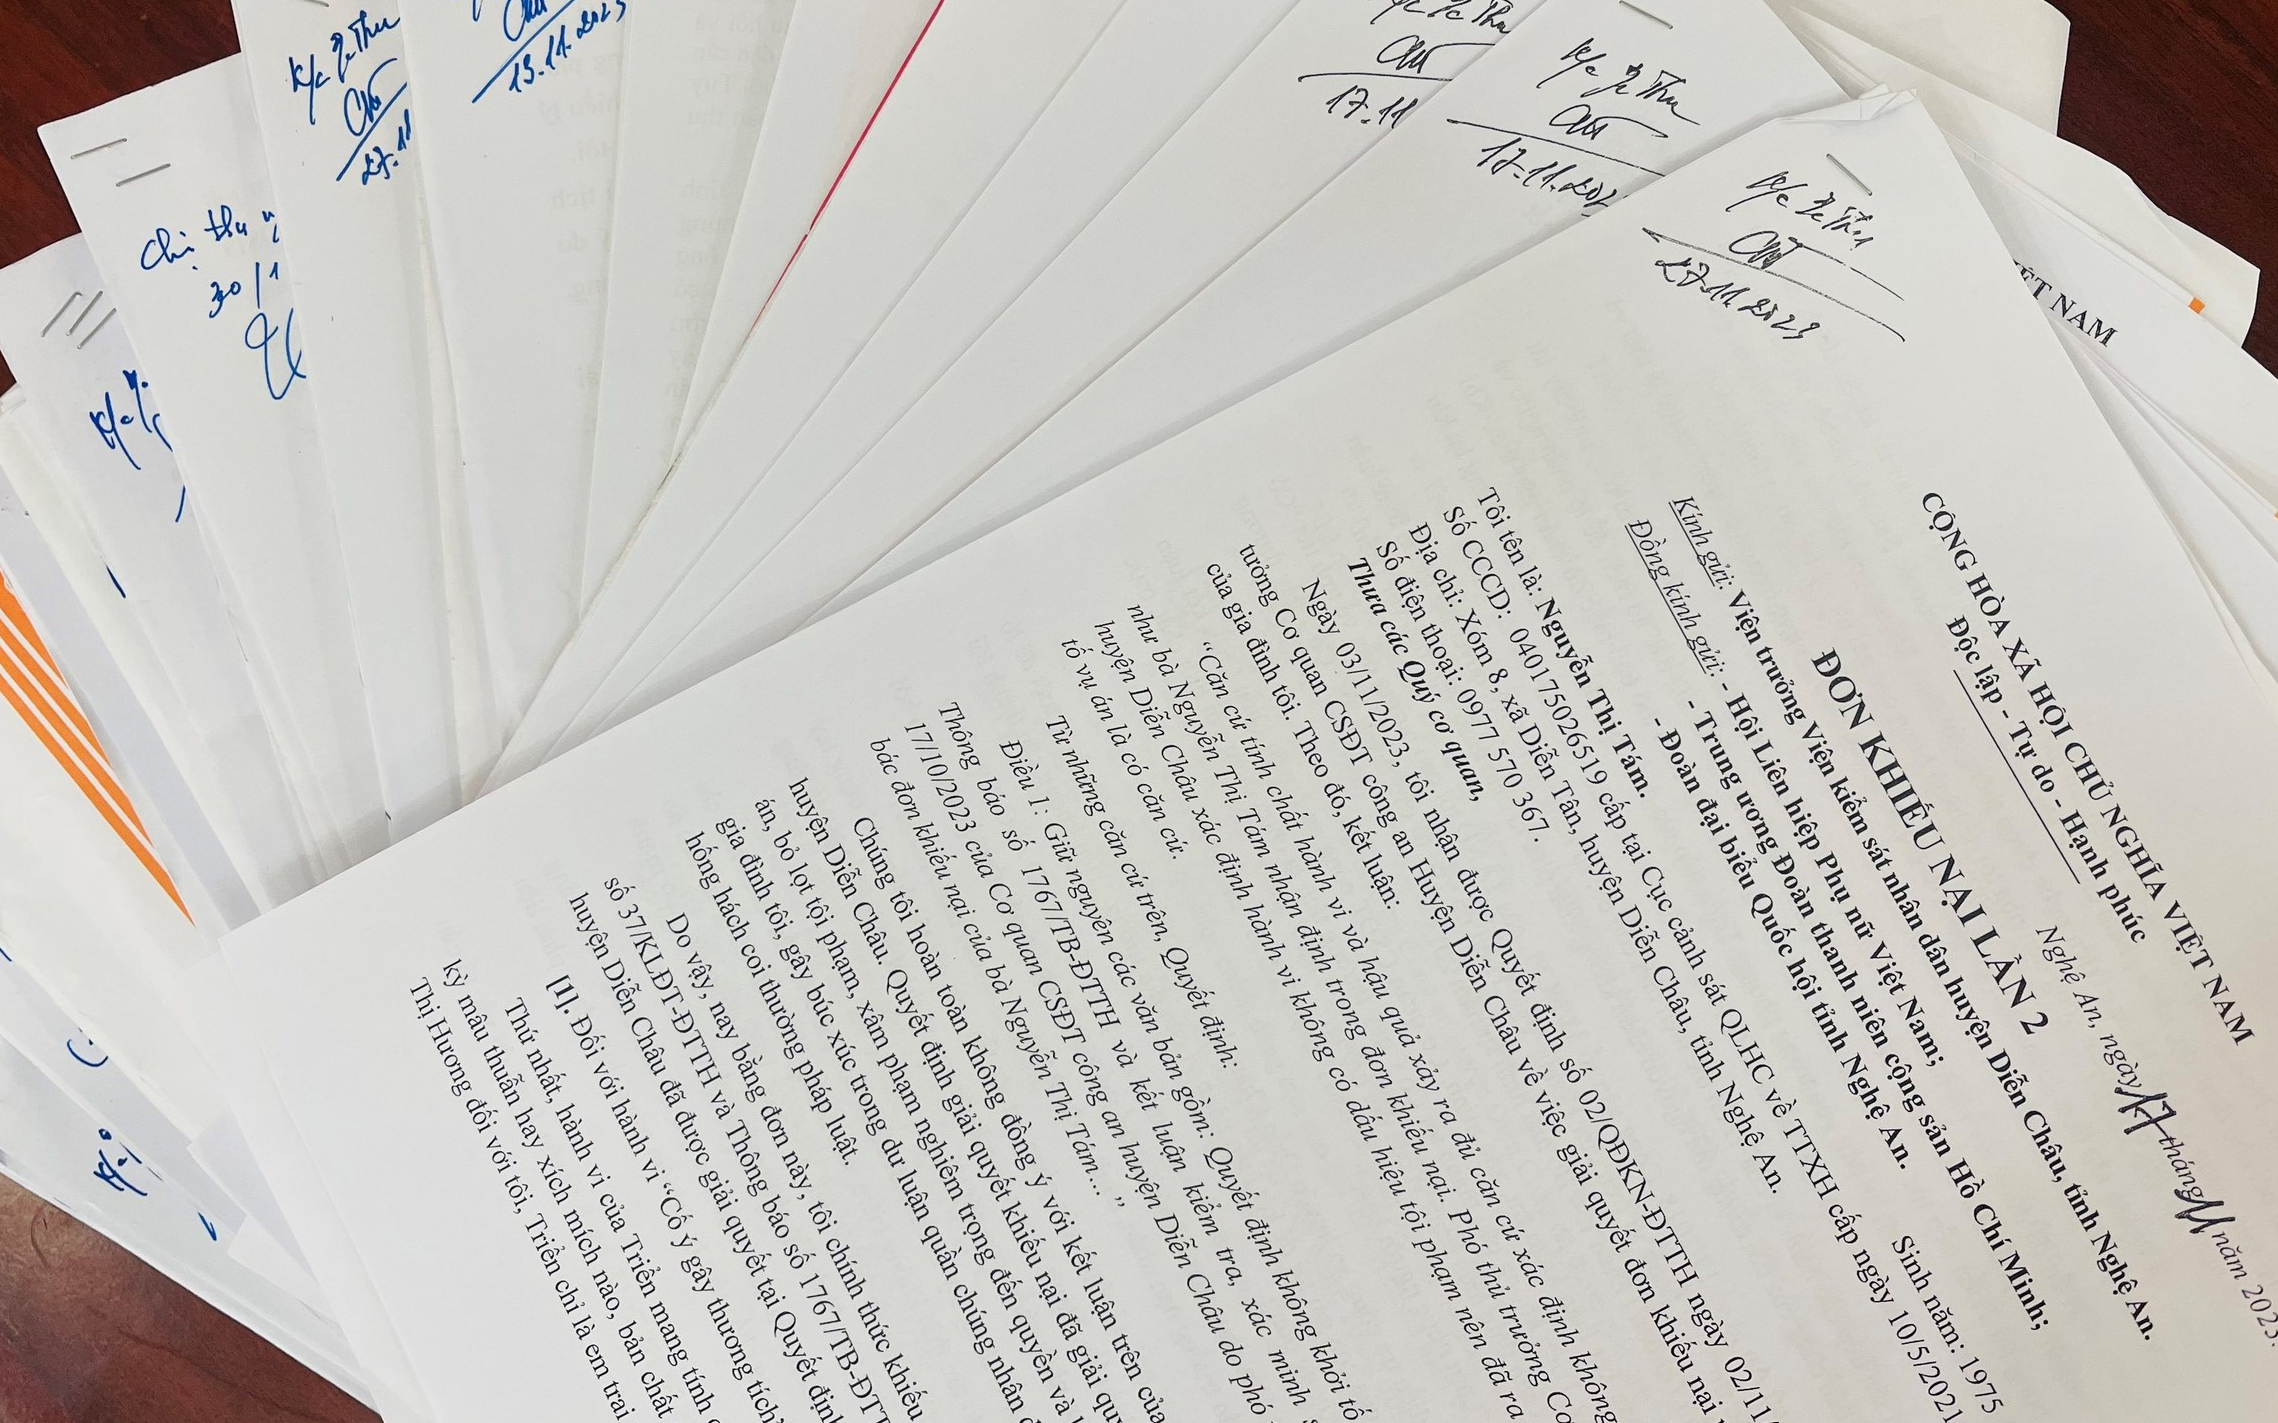 27.11.2023
17.11.202
17.11
13.11.2023
27.11
Chị thu
30/1
ỆT NAM
CỘNG HÒA XÃ HỘI CHỦ NGHĨA VIỆT NAM
Độc lập - Tự do - Hạnh phúc
Nghệ An, ngày 17 tháng 11 năm 2023.
ĐƠN KHIẾU NẠI LẦN 2
Kính gửi: Viện trưởng Viện kiểm sát nhân dân huyện Diễn Châu, tỉnh Nghệ An.
Đồng kính gửi: - Hội Liên hiệp Phụ nữ Việt Nam;
- Trung ương Đoàn thanh niên cộng sản Hồ Chí Minh;
- Đoàn đại biểu Quốc hội tỉnh Nghệ An.
Tôi tên là: Nguyễn Thị Tám. Sinh năm: 1975
Số CCCD: 040175026519 cấp tại Cục cảnh sát QLHC về TTXH cấp ngày 10/5/2021
Địa chỉ: Xóm 8, xã Diễn Tân, huyện Diễn Châu, tỉnh Nghệ An.
Số điện thoại: 0977 570 367.
Thưa các Quý cơ quan,
Ngày 03/11/2023, tôi nhận được Quyết định số 02/QĐKN-ĐTTH ngày 02/11
tưởng Cơ quan CSĐT công an Huyện Diễn Châu về việc giải quyết đơn khiếu nại
của gia đình tôi. Theo đó, kết luận:
“Căn cứ tính chất hành vi và hậu quả xảy ra đủ căn cứ xác định không
như bà Nguyễn Thị Tám nhận định trong đơn khiếu nại. Phó thủ trưởng Cơ
huyện Diễn Châu xác định hành vi không có dấu hiệu tội phạm nên đã ra
tố vụ án là có căn cứ.
Từ những căn cứ trên, Quyết định:
Điều 1: Giữ nguyên các văn bản gồm: Quyết định không khởi tố
Thông báo số 1767/TB-ĐTTH và kết luận kiểm tra, xác minh
17/10/2023 của Cơ quan CSĐT công an huyện Diễn Châu do phó
bác đơn khiếu nại của bà Nguyễn Thị Tám... ”
Chúng tôi hoàn toàn không đồng ý với kết luận trên của
huyện Diễn Châu. Quyết định giải quyết khiếu nại đã giải quy
án, bỏ lọt tội phạm, xâm phạm nghiêm trọng đến quyền và
gia đình tôi, gây búc xúc trong dư luận quần chúng nhân
hống hách coi thường pháp luật.
Do vậy, nay bằng đơn này, tôi chính thức khiếu
số 37/KLĐT-ĐTTH và Thông báo số 1767/TB-ĐTT
huyện Diễn Châu đã được giải quyết tại Quyết định
[1]. Đối với hành vi “Cố ý gây thương tích
Thứ nhất, hành vi của Triển mang tính
kỳ mâu thuẫn hay xích mích nào, bản chất
Thị Hương đối với tôi, Triển chỉ là em trai